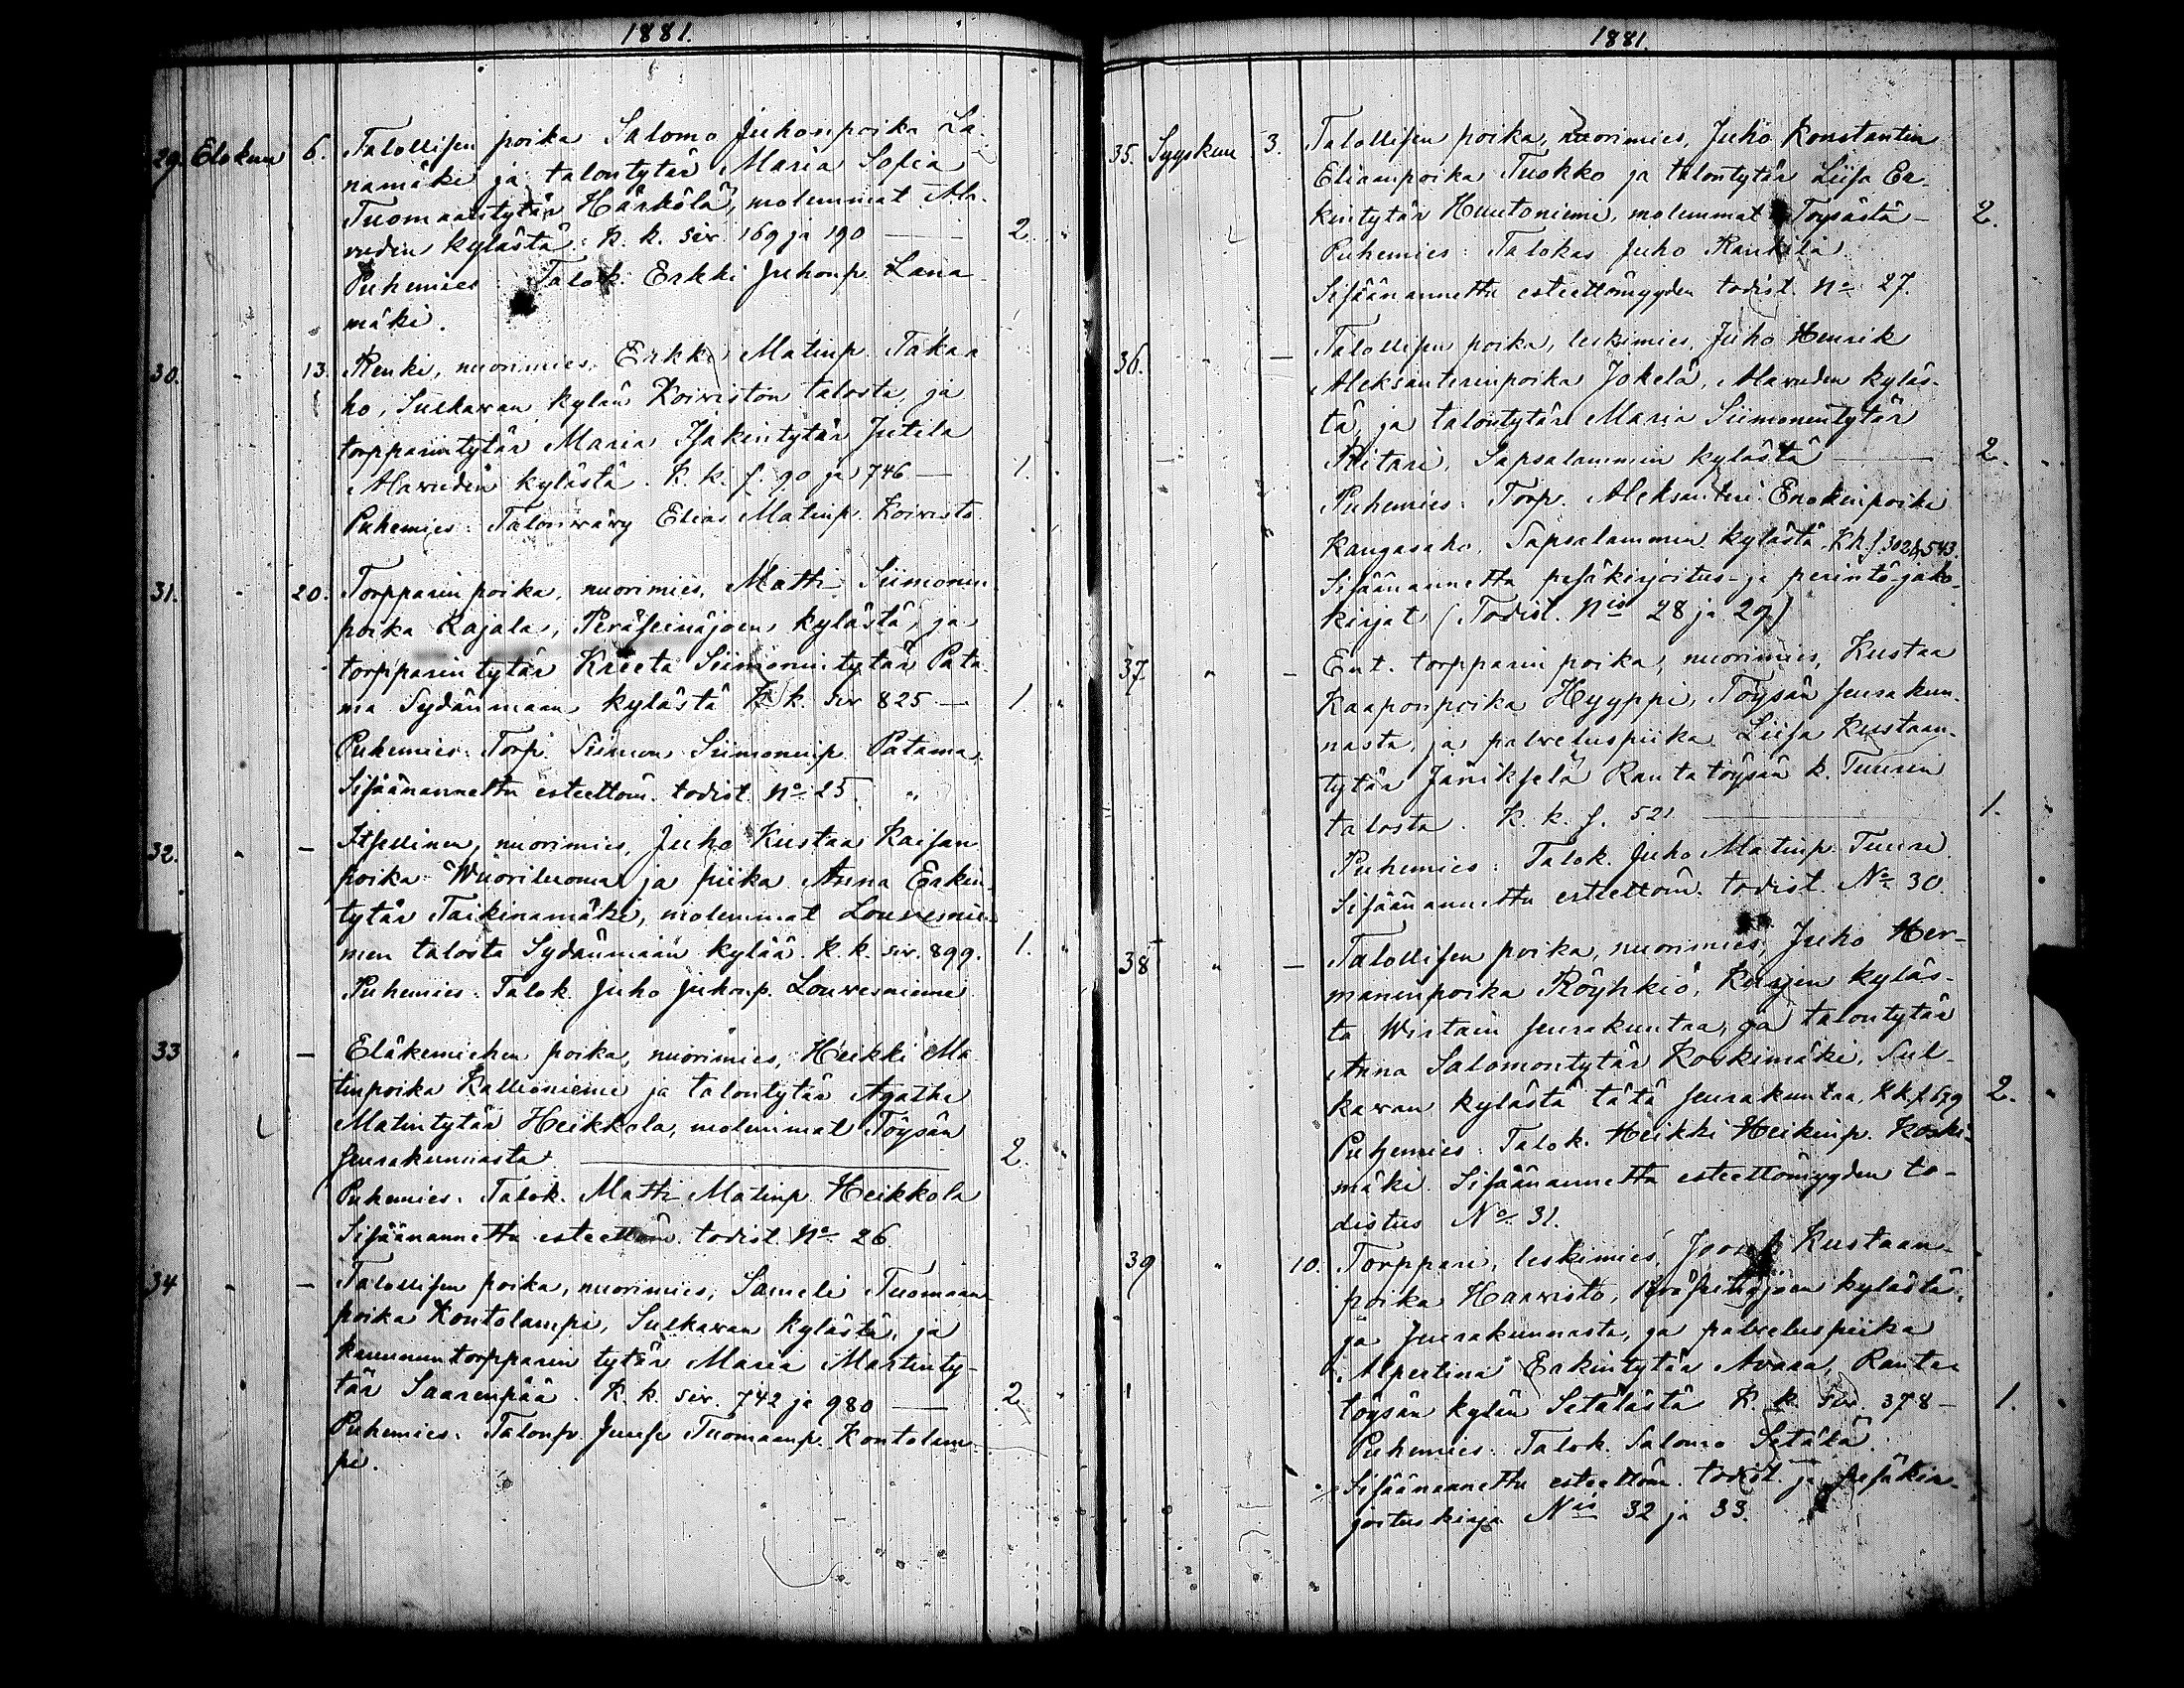 1881.
29. Elokuu 6. Tallollisen poika Salomo Juhonpoika La-
namäki ja talontytär Maria Sofia
Tuomaantytär Härkölä, molemmat Ala-
vuden kylästä. K. k. siv. 169 ja 190 — 2. "
Puhemies: Talok. Erkki Juhonp. Lana
mäki.
30. " 13. Renki, nuorimies, Erkki Matinp. Takaa
ho, Sulkavan kylän Koiviston talosta, ja
torpparintytär Maria Isakintytär Jutila
Alavuden kylästä. K. k. s. 90 ja 746 — 1. "
Puhemies: Talonwäwy Elias Matinp. Koivisto
31. " 20. Torpparin poika, nuorimies, Matti Siimonin
poika Rajala, Peräseinäjoen kylästä, ja
torpparin tytär Kreeta Siimonintytär Pata
ma Sydänmaan kylästä K. k. siv 825 — 1. "
Puhemies: Torp. Siimon Siimoninp. Patama
Sisäänannettu esteettöm. todist. No 25. "
32. " — Itsellinen, nuorimies, Juho Kustaa Kaisan
poika Wuoriluoma ja piika Anna Erkin-
tytär Taikinamäki, molemmat Louvesnie-
men talosta Sydänmaan kylää. K. k. siv. 899. 1. "
Puhemies: Talok. Juho Juhonp. Louvesniemi
33 " — Eläkemiehen poika, nuorimies, Heikki Ma
tinpoika Kallioniemi ja talontytär Agatha
Matintytär Heikkola, molemmat Töysän
seurakunnasta. — 2. "
Puhemies: Talok. Matti Matinp. Heikkola
Sisäänannettu esteettöm. todist. No 26.
34 " — Talollisen poika, nuorimies, Sameli Tuomaan-
poika Kontolampi, Sulkavan kylästä, ja
kruununtorpparin tytär Maria Martinty-
tär Saarenpää. K. k. siv. 742 ja 980 — 2. "
Puhemies: Talonp. Juse Tuomaanp. Kontolam-
pi.
1881.
35. Syyskuu 3. Talollisen poika, nuorimies, Juho Konstantin
Eliaanpoika Tuokko ja talontytär Liisa Er-
kintytär Huutoniemi, molemmat Töysästä — 2.
Puhemies: Talokas Juho Rankila.
Sisäänannettu esteettömyyden todist. No 27.
36. " — Talollisen poika, leskimies, Juho Henrik
Aleksanterinpoika Jokela, Alavuden kyläs-
tä, ja talontytär Maria Siimonintytär
Ritari, Sapsalammin kylästä — 2. "
Puhemies: Torp. Aleksanteri Enokinpoika
Kangasaho, Sapsalammin kylästä. K.k. s. 302 & 543.
Sisäänannettu pesäkirjoitus- ja perintö-jako-
kirjat (Todist. Nis 28 ja 29)
37 " — Ent. torpparin poika, nuorimies, Kustaa
Kaaponpoika Hyyppi, Töysän seurakun-
nasta, ja palveluspiika Liisa Kustaan-
tytär Jänikselä Rantatöysän k. Tuurin
talosta. K. k. s. 521 — 1. "
Puhemies: Talok. Juho Matinp. Tuuri
Sisäänannettu esteettöm. todist. No 30.
38 " — Talollisen poika, nuorimies, Juho Her-
maninpoika Röyhkiö, kyläs-
tä Wirtain seurakuntaa, ja talontytär
Anna Salomontytär Koskimäki, Sul-
kavan kylästä tätä seurakuntaa, K.k. s. 679 2. "
Puhemies: Talok. Heikki Heikinp. Koski-
mäki. Sisäänannettu esteettömyyden to-
distus No 31.
39 " 10. Torppari, leskimies, Joosef Kustaan-
poika Haavisto, Peräseinäjoen kylästä,
ja seurakunnasta, ja palveluspiika
Alpertina Erkintytär Avara, Ranta-
töysän kylän Setälästä K. k. siv. 378 — 1. "
Puhemies: Talok. Salomo Setälä.
Sisäänannettu esteettöm. todist. ja pesäkir-
joituskirja Nis 32 ja 33.